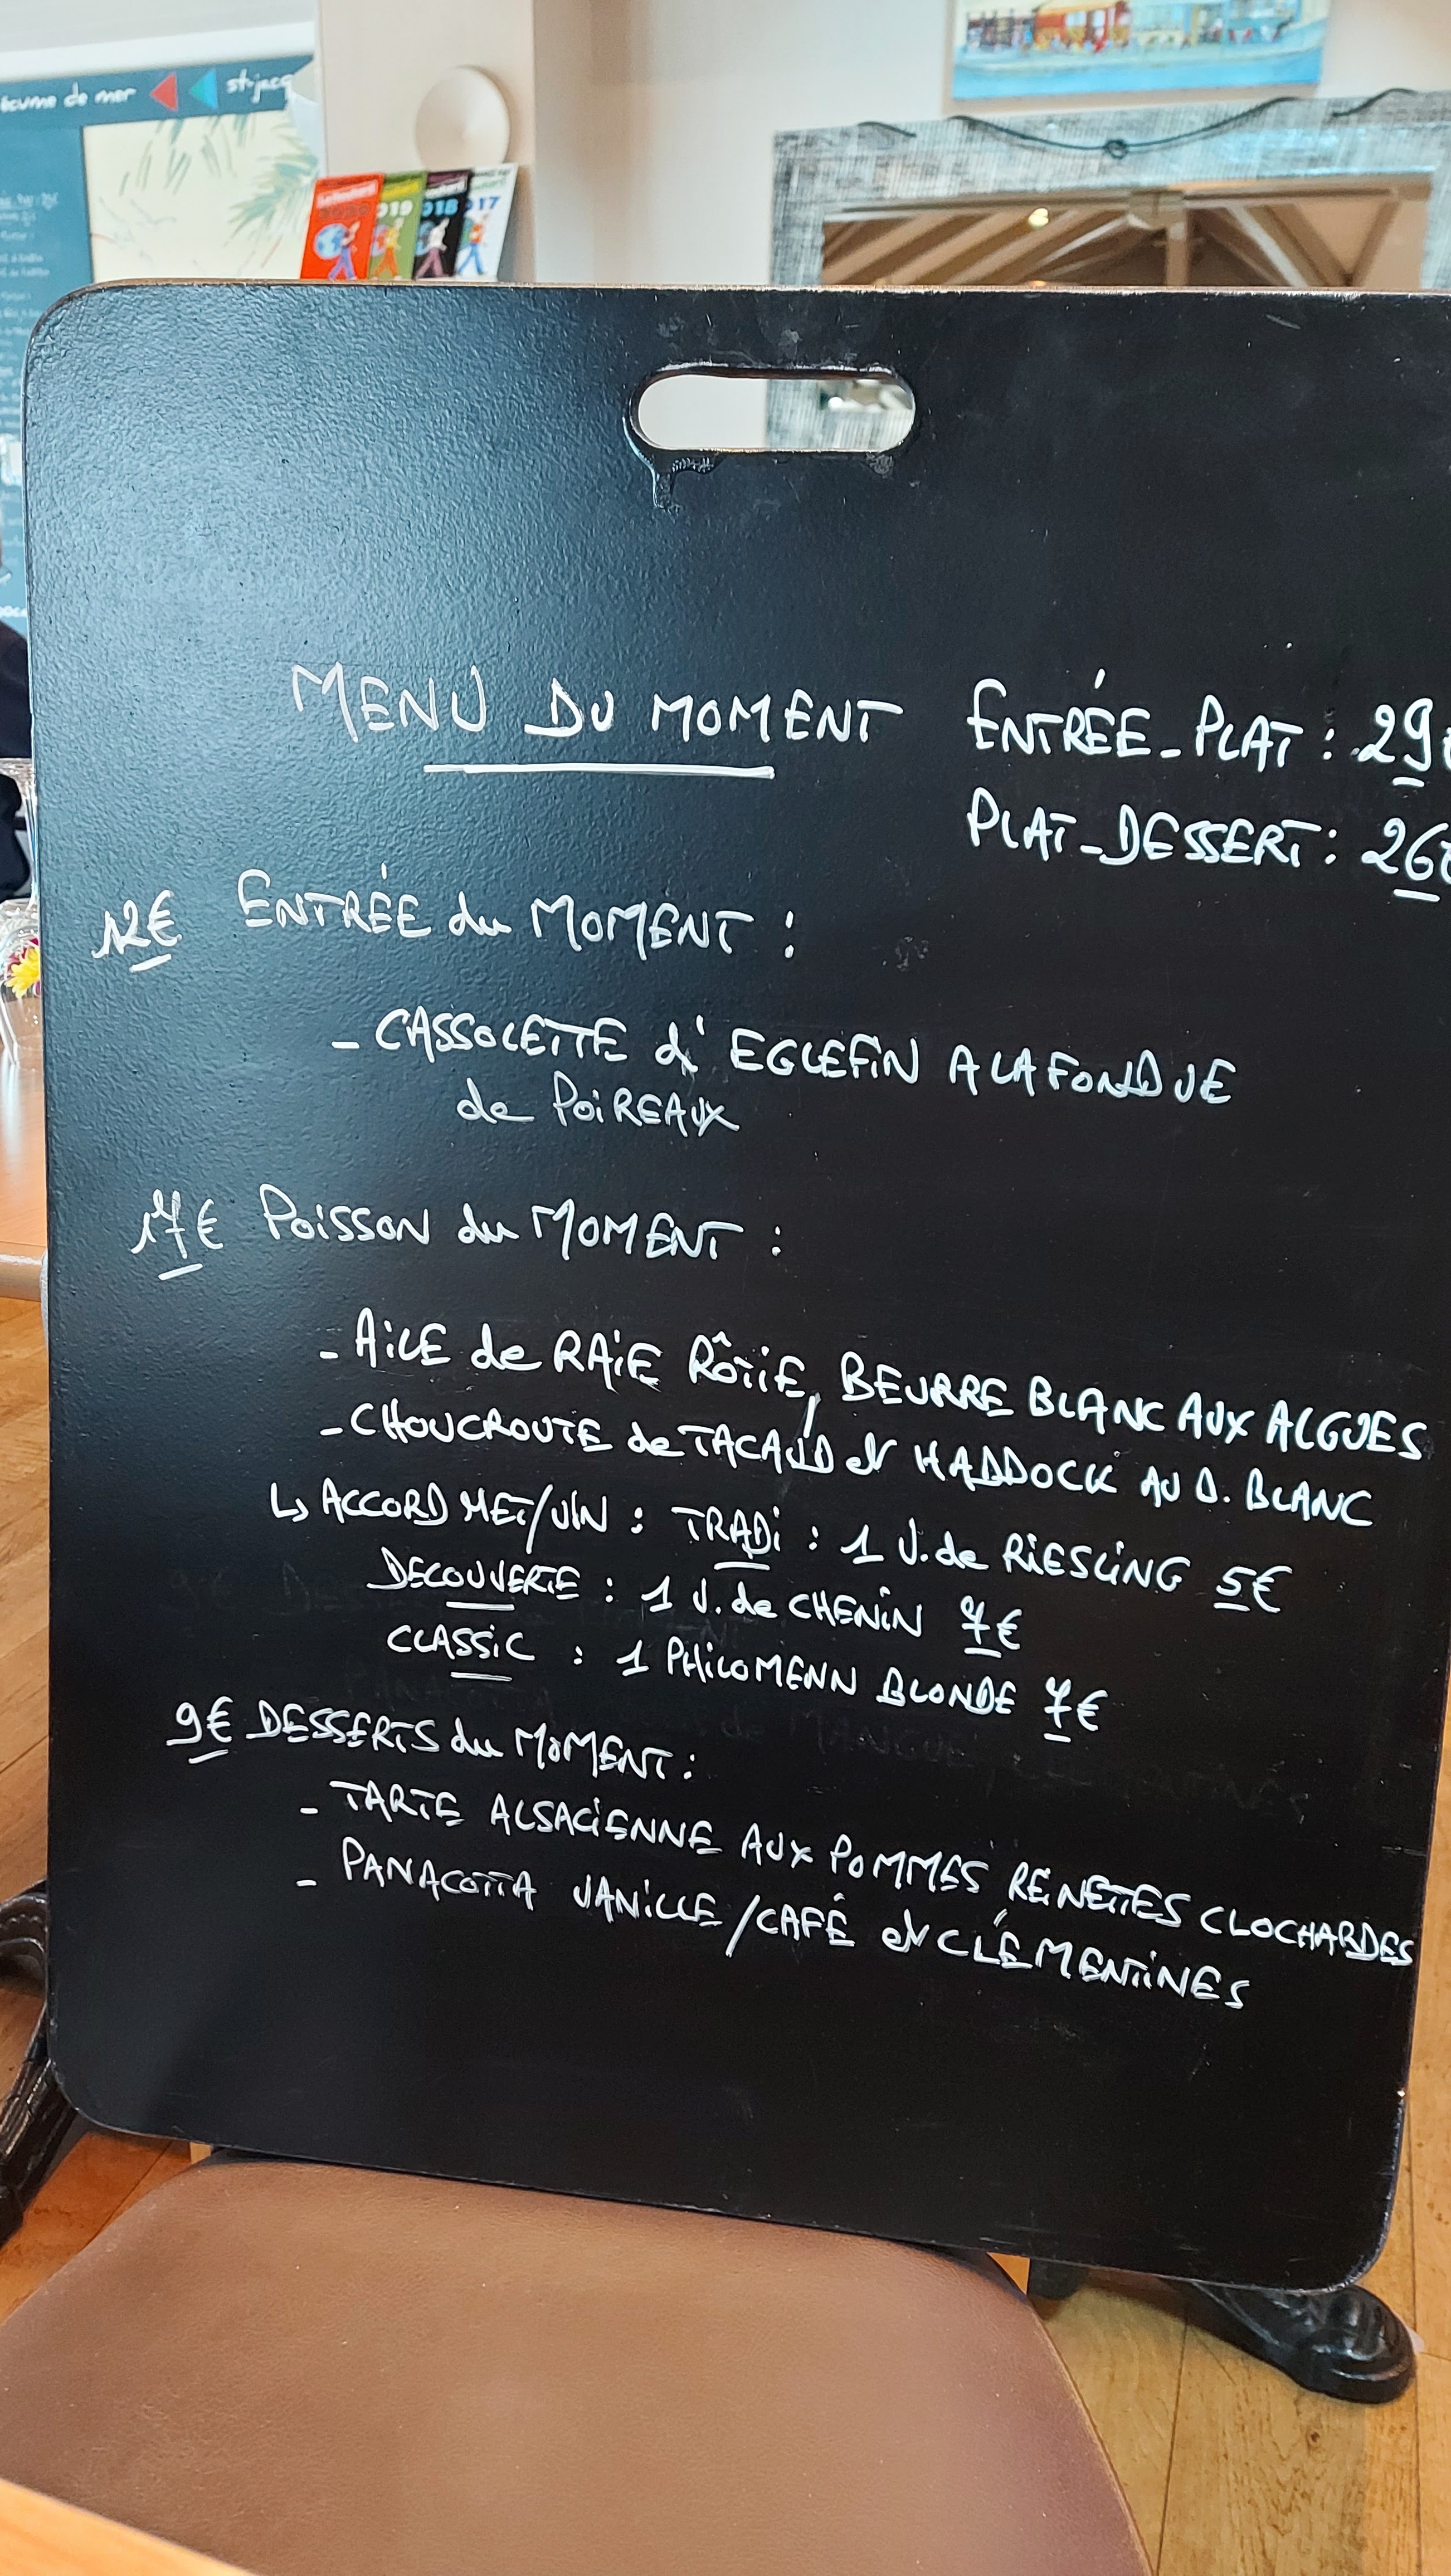 écume de mer
st-jacq
2020
2019
2018
2017
MENU DU MOMENT
ENTRÉE-PLAT : 29€
PLAT-DESSERT : 26€
12€ ENTRÉE du MOMENT :
- CASSOLETTE d'EGLEFIN A LA FONDUE
de POIREAUX
17€ POISSON du MOMENT :
- AILE de RAIE RÔTIE, BEURRE BLANC AUX ALGUES
- CHOUCROUTE de TACAUD et HADDOCK AU B. BLANC
↳ ACCORD MET/VIN : TRADI : 1 V. de RIESLING 5€
DECOUVERTE : 1 V. de CHENIN 7€
CLASSIC : 1 PHILOMENN BLONDE 7€
9€ DESSERTS du MOMENT :
- TARTE ALSACIENNE AUX POMMES REINETTES CLOCHARDES
- PANACOTTA VANILLE/CAFÉ et CLÉMENTINES